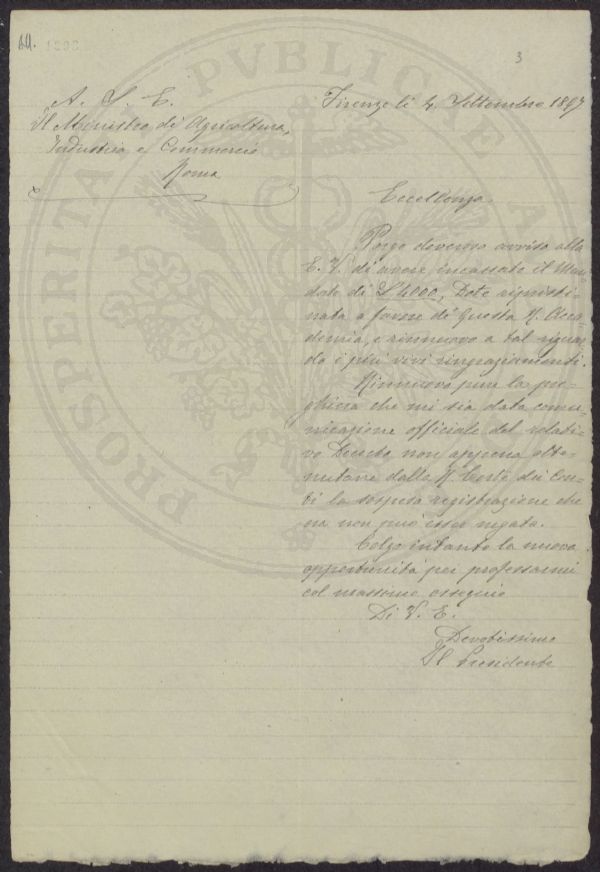 60.
3
Firenze li 4 Settembre 1897
A. S. E.
Il Ministro di Agricoltura,
Industria e Commercio
Roma
Eccellenza
Porgo doveroso avviso alla
E. V. di avere incassato il Man-
dato di £ 4000, Dote ripristi-
nata a favore di questa R. Acca-
demia, e rinnuovo a tal riguar-
do i più vivi ringraziamenti.
Rinnuovo pure la pre-
ghiera che mi sia data comu-
nicazione officiale del relati-
vo Decreto non appena otte-
nutane dalla R. Corte dei Con-
ti la sospesa registrazione che
ora non può esser negata.
Colgo intanto la nuova
opportunità per professarmi
col massimo ossequio
Di V. E.
Devotissimo
Il Presidente
PROSPERITATI PVBLICAE A